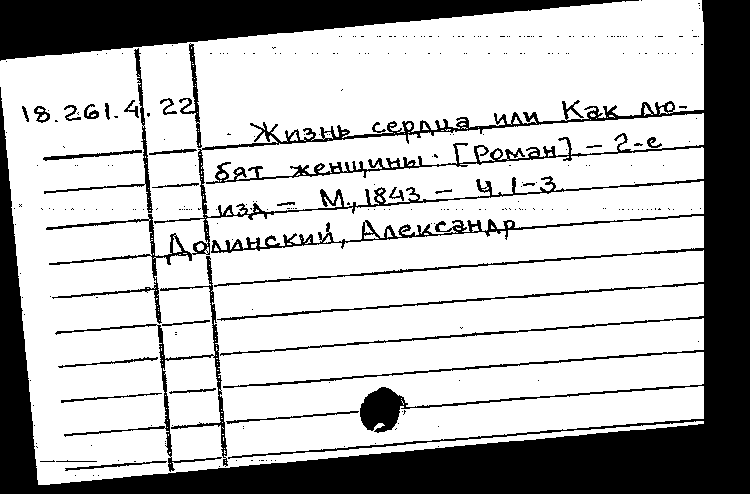 18.261.4.22
Жизнь сердца, или Как лю-
бят женщины: [Роман]. – 2-е
изд. – М., 1843. – Ч. 1-3.
Долинский, Александр